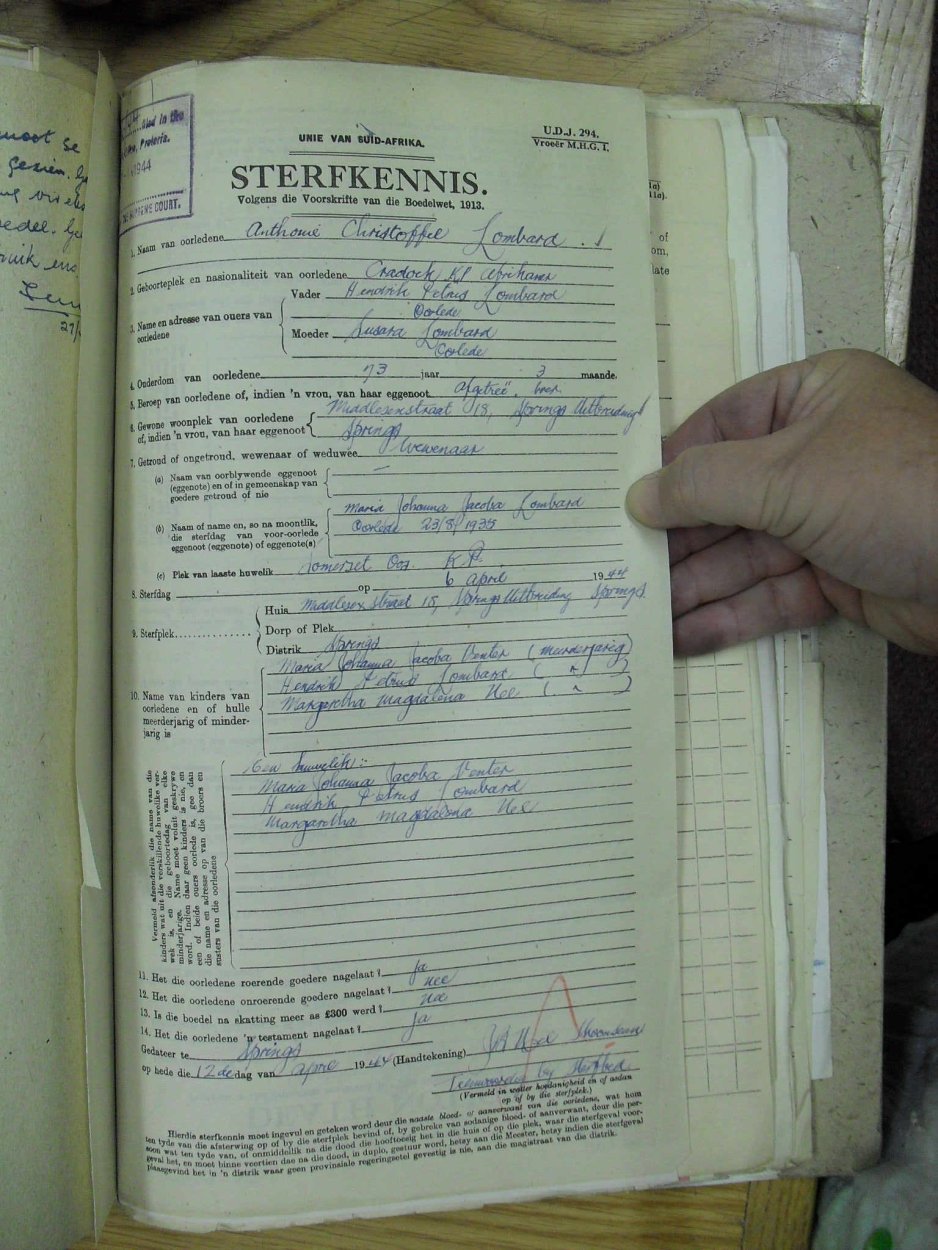 moot se
gesien. ge
edel. ge
27/
filed in the
Pretoria.
1944
SUPREME COURT.
UNIE VAN SUID-AFRIKA.
U.D.J. 294.
Vroeër M.H.G. I.
STERFKENNIS.
Volgens die Voorskrifte van die Boedelwet, 1913.
1. Naam van oorledene Anthonie Christoffel Lombard.
2. Geboorteplek en nasionaliteit van oorledene Cradock K.P. Afrikaner
3. Name en adresse van ouers van oorledene
Vader Hendrik Petrus Lombard
Oorlede
Moeder Susara Lombard
Oorlede
4. Ouderdom van oorledene 73 jaar 3 maande.
5. Beroep van oorledene of, indien 'n vrou, van haar eggenoot Afgetreë boer
6. Gewone woonplek van oorledene of, indien 'n vrou, van haar eggenoot
Middlesexstraat 18, Springs Uitbreiding
Springs
7. Getroud of ongetroud, wewenaar of weduwee Wewenaar
(a) Naam van oorblywende eggenoot (eggenote) en of in gemeenskap van goedere getroud of nie —
(b) Naam of name en, so na moontlik, die sterfdag van voor-oorlede eggenoot (eggenote) of eggenote(s)
Maria Johanna Jacoba Lombard
Oorlede 23/8/1935
(c) Plek van laaste huwelik Somerset Oos. K.P.
8. Sterfdag op 6 April 1944
9. Sterfplek
Huis Middlesex straat 18, Springs Uitbreiding Springs
Dorp of Plek
Distrik Springs
10. Name van kinders van oorledene en of hulle meerderjarig of minderjarig is
Maria Johanna Jacoba Venter (meerderjarig)
Hendrik Petrus Lombard ( " )
Margaretha Magdalena Nel ( " )
Vermeld afsonderlik die name van die kinders wat uit die verskillende huwelike verwek is, en die geboortedag van elke minderjarige. Name moet voluit geskrywe word. Indien daar geen kinders is nie, en een of beide ouers oorlede is, gee dan die name en adresse op van die broers en susters van die oorledene
Een huwelik:
Maria Johanna Jacoba Venter
Hendrik Petrus Lombard
Margaretha Magdalena Nel
11. Het die oorledene roerende goedere nagelaat? Ja
12. Het die oorledene onroerende goedere nagelaat? Nee
13. Is die boedel na skatting meer as £300 werd? Nee
14. Het die oorledene 'n testament nagelaat? Ja
Gedateer te Springs
op hede die 12de dag van April 1944 (Handtekening) Skoonseun
Teenwoordig by sterfbed
(Vermeld in watter hoedanigheid en of asdan op of by die sterfplek.)
Hierdie sterfkennis moet ingevul en geteken word deur die naaste bloed- of aanverwant van die oorledene, wat hom
ten tyde van die afsterwing op of by die sterfplek bevind of, by gebreke van sodanige bloed- of aanverwant, deur die persoon
wat ten tyde van, of onmiddellik na die dood die hooftoesig het in die huis of op die plek, waar die sterfgeval voorgeval
het, en moet binne veertien dae na die dood, in duplo, gestuur word, hetsy aan die Meester, hetsy indien die sterfgeval
plaasgevind het in 'n distrik waar geen provinsiale regeringsetel gevestig is nie, aan die magistraat van die distrik.